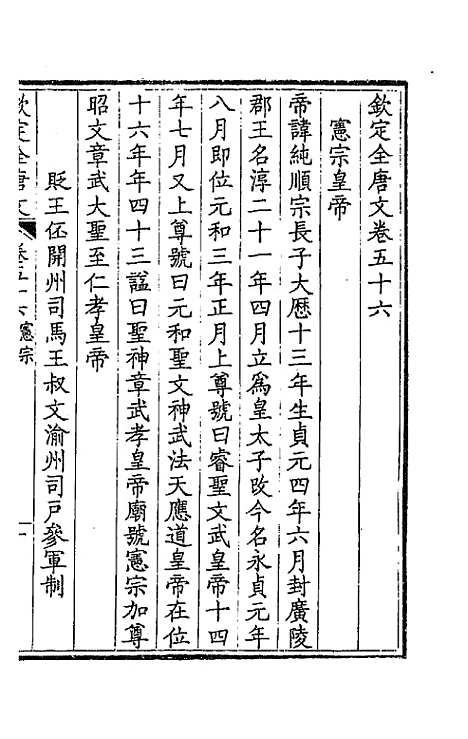 欽定全唐文卷五十六
憲宗皇帝
帝諱純順宗長子大厯十三年生貞元四年六月封廣陵
郡王名淳二十一年四月立爲皇太子改今名永貞元年
八月即位元和三年正月上尊號曰睿聖文武皇帝十四
年七月又上尊號曰元和聖文神武法天應道皇帝在位
十六年年四十三諡曰聖神章武孝皇帝廟號憲宗加尊
昭文章武大聖至仁孝皇帝
貶王伾開州司馬王叔文渝州司戸參軍制
欽定全唐文 卷五十六憲宗 一